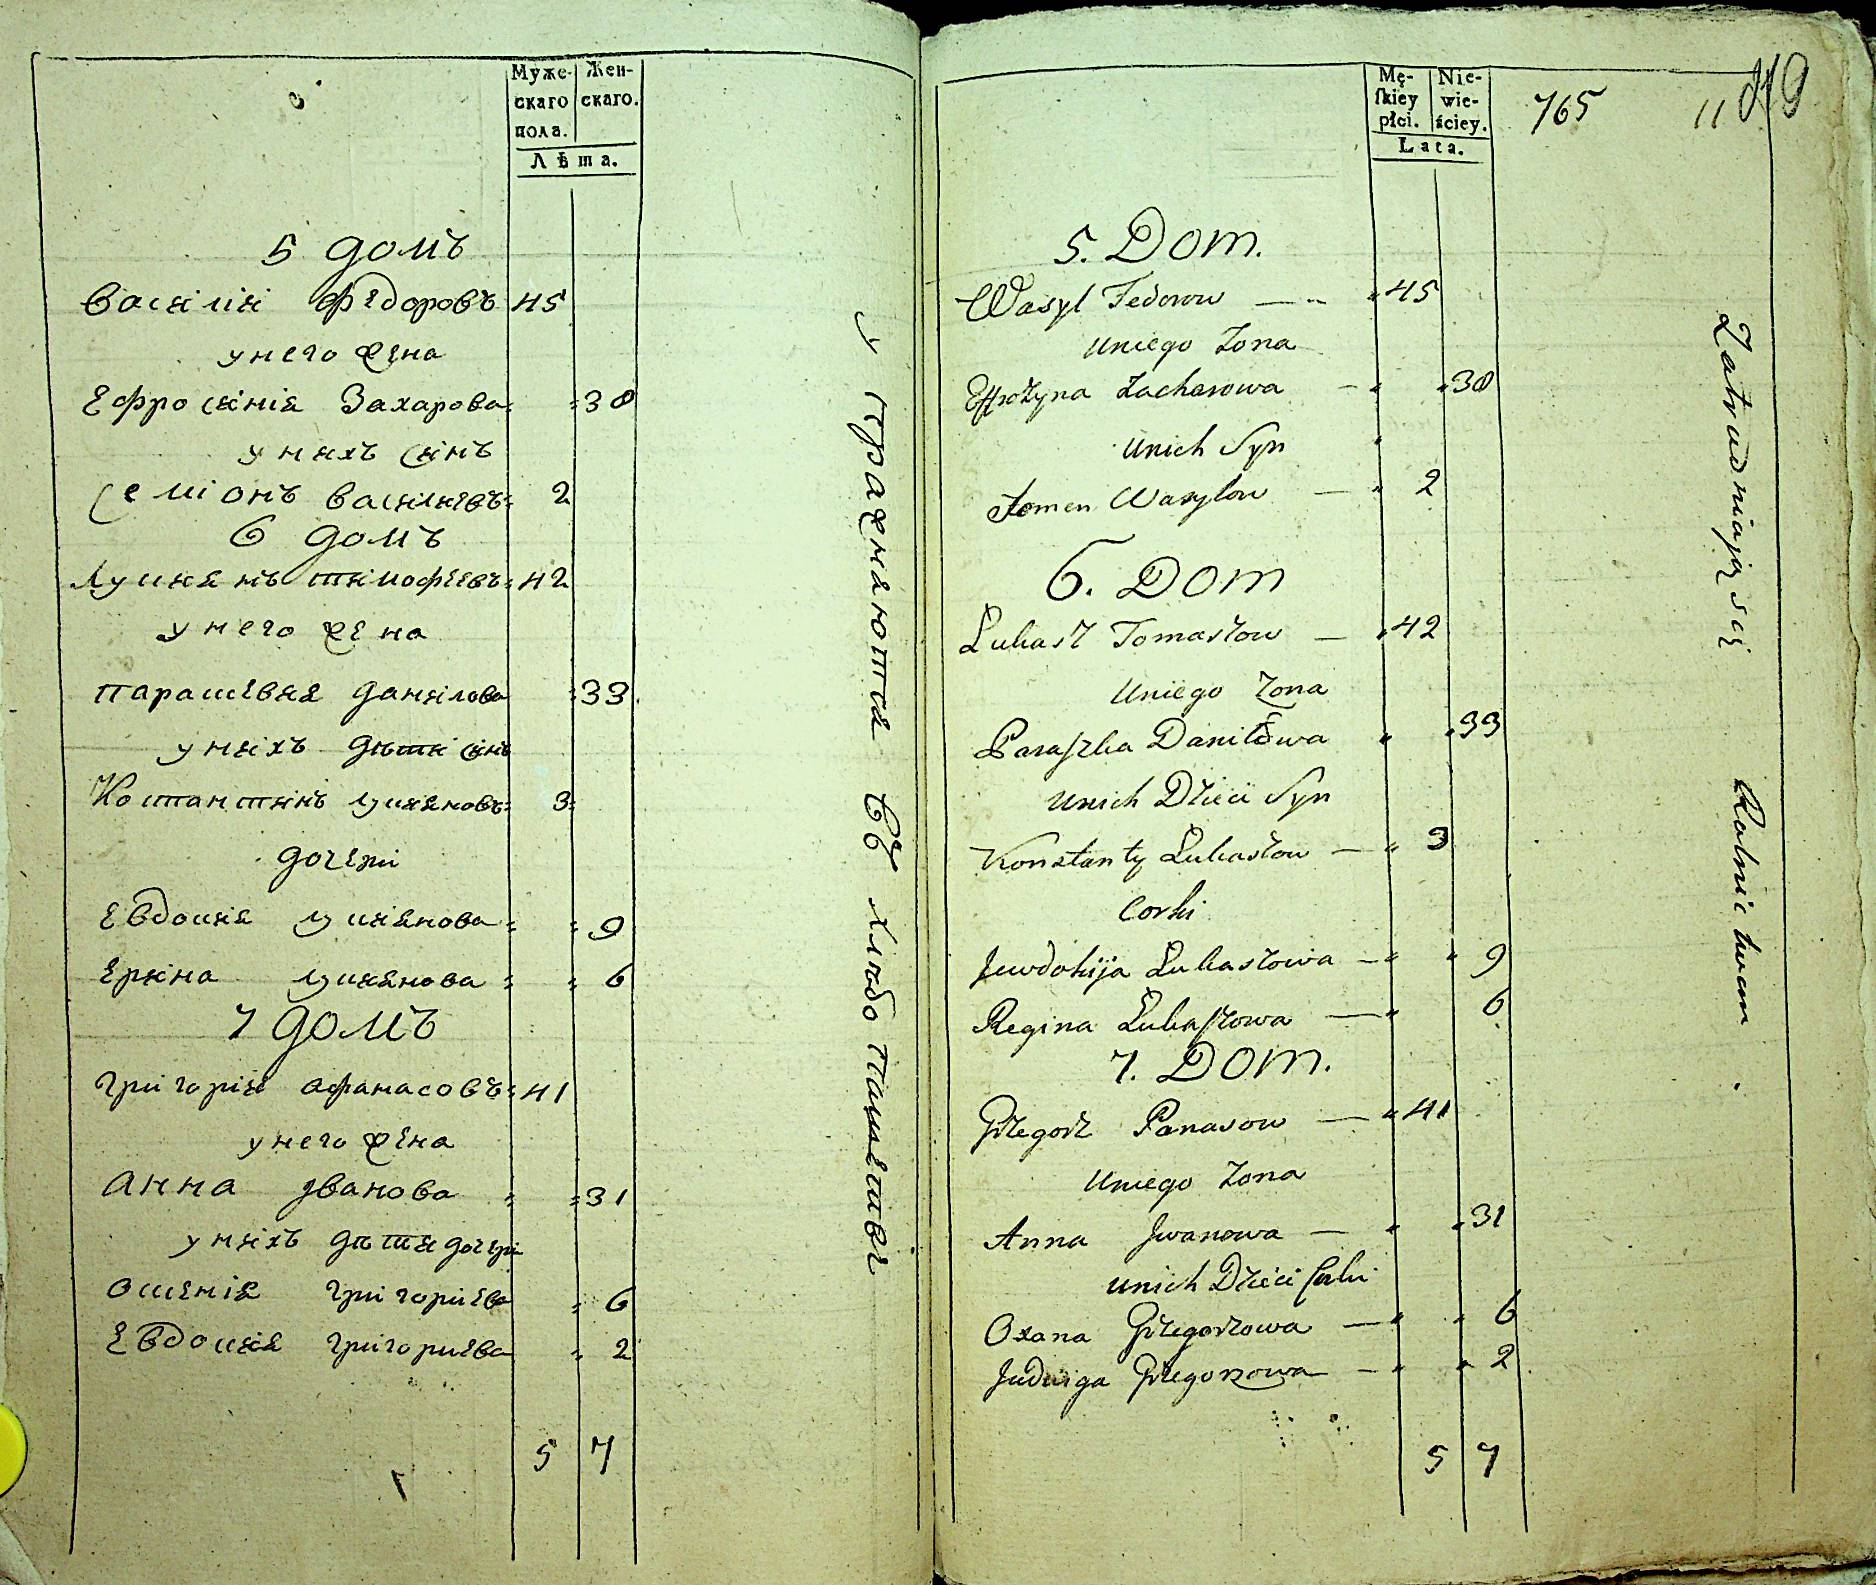 Муже- Жен-
скаго скаго.
пола.
Лѣта.
5 домъ
Василий Федоровъ 45
у него жена
Ефросиния Захарова 38
у нихъ синъ
Семионъ Василиевъ 2
6 домъ
Лукиянъ Тимофеевъ 42
у него жена
Парасковия Данилова 33
у нихъ дѣти синъ
Костантинъ Лукияновъ 3
дочери
Евдокия Лукиянова 9
Ерина Лукиянова 6
7 домъ
Григорий Афанасовъ 41
у него жена
Анна Иванова 31
у нихъ дѣти дочери
Оксения Григориева 6
Евдокия Григориева 2
5 7
Mę- Nie-
skiey wie-
płci. ściey.
Lata.
765 11
5. Dom.
Wasyl Fedorow — 45
Uniego Zona
Effrozyna Zacharowa — 38
Unich Syn
Semen Wasylow — 2
6. Dom
Łukasz Tomaszow — 42
Uniego Zona
Paraszka Daniłowa 33
Unich Dzieci Syn
Konstanty Łukaszow — 3
Corki
Jewdokija Łukaszowa — 9
Regina Łukaszowa — 6
7. Dom.
Grzegorz Panasow — 41
Uniego Zona
Anna Jwanowa — 31
Unich Dzieci Corki
Oxana Grzegorzowa — 6
Judwiga Grzegorzowa — 2
5 7
Zatrudniaią się Rolnictwem.